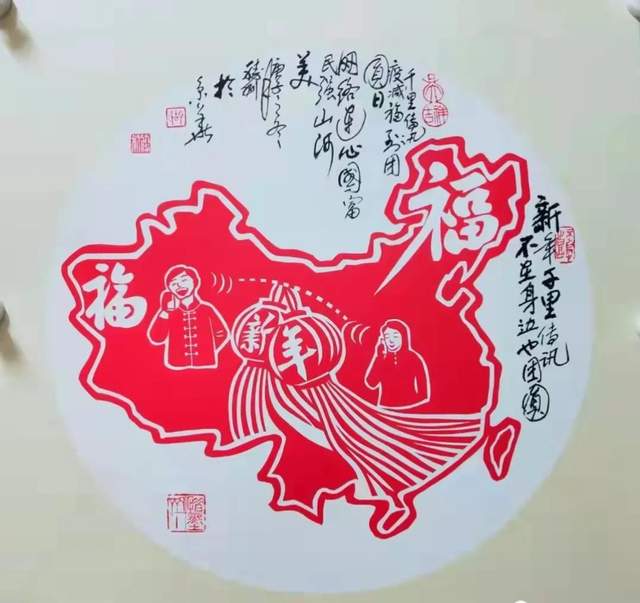 新年千里传讯
不在身边也团圆
千里传讯
疫减福到团
圆日
网络连心国富
民强山河
美
於
福
福
新年